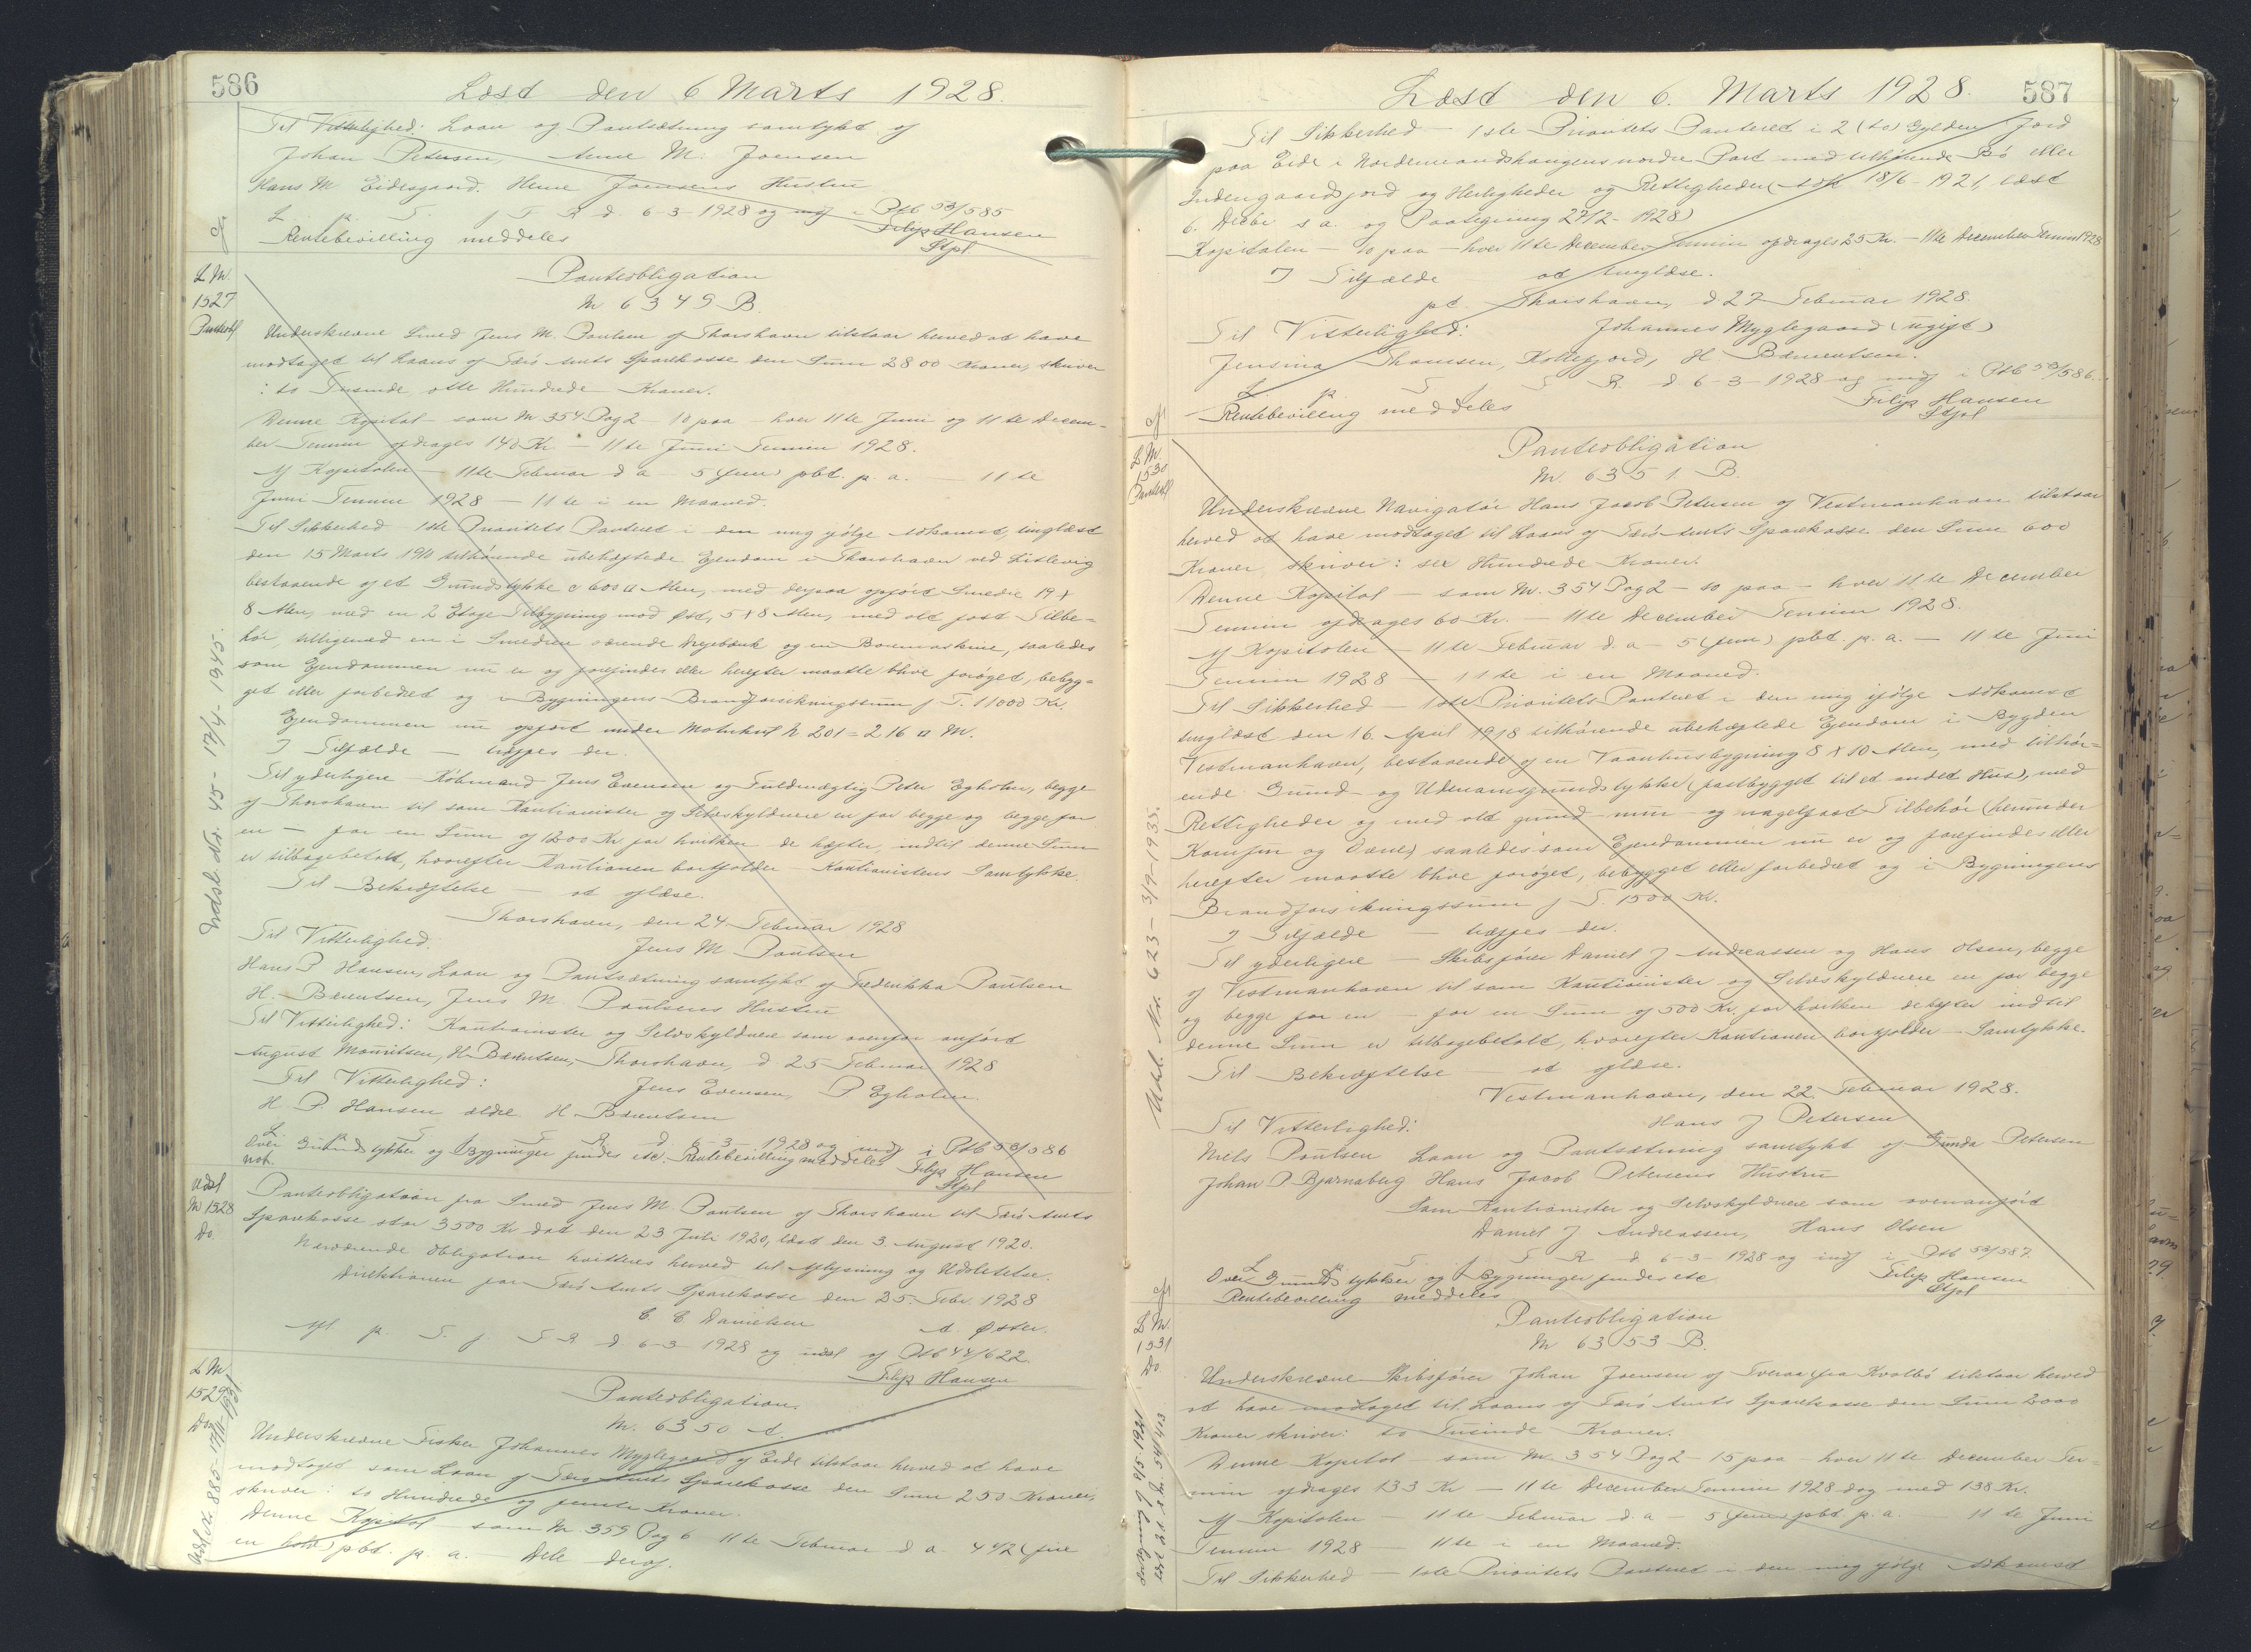 586
Læst den 6 Marts 1928.
Til Vitterlighed: Laan og Pantsætning samtykt af
Johan Petersen, Anne M. Joensen
Hans M. Eidesgaard. Heine Joensens Hustru
L. p. T. f T. R d. 6-3-1928 og indf i Ptb 53/585
Rentebevilling meddeles Filip Hansen
Stfl
L Nr.
1527
Panteobl
Panteobligation
Nr 6349 B.
Underskrevne Smed Jens M. Poulsen af Thorshavn tilstaar herved at have
modtaget til Laans af Færø Amts Sparekasse den Sum 2800 Kroner, skriver
: to Tusinde otte Hundrede Kroner.
Denne Kapital - som Nr 354 Pag 2 - so paa - hver 11te Juni og 11te Decem=
ber Termin afdrages 140 Kr. - 11te Juni Termin 1928.
Af Kapitalen - 11te Februar d a - 5 (fem) pCt. p. a. - 11te
Juni Termin 1928 - 11te i en Maaned.
Til Sikkerhed - 1ste Prioritets Panteret i den mig ifølge Adkomst, tinglæst
den 15 Marts 1911 tilhørende ubehæftede Ejendom i Thorshavn ved Lislevig
bestaaende af et Grundstykke c 600 □ Alen, med derpaa opført Smedie 19 x
8 Alen, med en 2 Etage Tilbygning mod Øst, 5 x 8 Alen, med alt fast Tilbe=
hør, tilligemed en i Smedien værende Drejebænk og en Boremaskine, saaledes
som Ejendommen nu er og forefindes eller herefter maatte blive forøget, bebyg=
get eller forbedret og i Bygningens Brandforsikringssum f T. 11000 Kr.
Ejendommen nu opført under Matrikul Nr 201 = 216 □ M.
I Tilfælde - træffes der.
Til yderligere - Købmand Jens Evensen og Fuldmægtig Peter Egholm, begge
af Thorshavn til som Kautionister og Selvskyldnere en for begge og begge for
en - for en Sum af 1200 Kr for hvilken de hæfter, indtil denne Sum
er tilbagebetalt, hvorefter Kautionen bortfalder - Kautionistens Samtykke
Til Bekræftelse - at aflæse.
Thorshavn, den 24. Februar 1928
Til Vitterlighed: Jens M. Poulsen
Hans P Hansen, Laan og Pantsætning samtykt af Frederikka Poulsen
H. Bærentsen, Jens M. Poulsens Hustru
Til Vitterlighed: Kautionister og Selvskyldnere som ovenfor anført
August Mouritsen, H Bærentsen, Thorshavn, d 25 Februar 1928
Til Vitterlighed: Jens Evensen, P. Egholm
H P. Hansen ældre H. Bærentsen
L. p. T. f T R d. 6-3-1928 og indf i Ptb 53/586
Over Grundstykker og Bygninger findes etc. Rentebevilling meddeles Filip Hansen
not. Stfl
Udsl. Nr. 45 - 17/4-1945.
Udsl
Nr 1528
Do.
Panteobligation fra Smed Jens M. Poulsen af Thorshavn til Færø Amts
Sparekasse stor 3500 Kr dat den 23 Juli 1920, læst den 3. August 1920.
Nærværende Obligation kvitteres herved til Aflysning og Udslettelse.
Direktionen for Færø Amts Sparekasse den 25. Febr. 1928
C. C. Danielsen A. Øster.
Afl p. T. f. T R d 6-3 1928 og udsl af Ptb 44/622.
Filip Hansen
L Nr
1529
Do
Panteobligation.
Nr. 6350 A.
Underskrevne Fisker Johannes Myglegaard af Eide tilstaar herved at have
modtaget som Laan af Færø Amts Sparekasse den Sum 250 Kroner,
skriver: to Hundrede og femti Kroner.
Denne Kapital - som Nr 359 Pag 6 11te Februar d a. 4 1/2 (fire
en halv) pCt. p. a. - Dele deraf.
587
Læst den 6. Marts 1928.
Til Sikkerhed - 1ste Prioritets Panteret i 2 (to) Gylden Jord
paa Eide i Nordenrandshaugens nordre Part med tilhørende Bø eller
Indengaardsjord og Herligheder og Rettigheder (Adk 18/6-1921, læst
6. Decbr s a. og Paategning 27/2-1928)
Kapitalen so paa - hver 11te December Termin afdrages 25 Kr. - 11te December Termin 1928
I Tilfælde at tinglæse.
pt. Thorshavn, d 27 Februar 1928.
Til Vitterlighed: Johannes Myglegaard (ugift)
Jensina Thomsen, Kollefjord, H Bærentsen.
L p. T. f T R. d 6-3-1928 og indf i Ptb 53/586.
Rentebevilling meddeles Filip Hansen
Stfl
L Nr.
1530
Pantobl
Panteobligation
Nr. 6351 B.
Underskrevne Navigatør Hans Jacob Petersen af Vestmanhavn tilstaar
herved at have modtaget til Laans af Færø Amts Sparekasse den Sum 600
Kroner skriver: sex Hundrede Kroner.
Denne Kapital - som Nr. 354 Pag 2 - so paa - hver 11te December
Termin afdrages 60 Kr. - 11te December Termin 1928.
Af Kapitalen - 11te Februar d. a - 5 (fem) pCt. p. a. - 11te Juni
Termin 1928 - 11te i en Maaned.
Til Sikkerhed - 1ste Prioritets Panteret i den mig ifølge Adkomst
tinglæst den 16. April 1918 tilhørende ubehæftede Ejendom i Bygden
Vestmanhavn, bestaaende af en Vaanhusbygning 8 x 10 Alen, med tilhør=
ende Grund og Udenomsgrundstykke (fastbygget til et andet Hus), med
Rettigheder og med alt grund- mur- og nagelfast Tilbehør (herunder
Komfur og Ovne) saaledes som Ejendommen nu er og forefindes eller
herefter maatte blive forøget, bebygget eller forbedret og i Bygningens
Brandforsikringssum f T. 1500 Kr.
I Tilfælde - træffes der.
Til yderligere - Skibsfører Daniel J Andreassen og Hans Olsen, begge
af Vestmanhavn til som Kautionister og Selvskyldnere en for begge
og begge for en - for en Sum af 500 Kr, for hvilken de hæfter indtil
denne Sum er tilbagebetalt, hvorefter Kautionen bortfalder - Samtykke.
Til Bekræftelse - at aflæse.
Vestmanhavn, den 22. Februar 1928.
Til Vitterlighed: Hans J Petersen
Niels Poulsen Laan og Pantsætning samtykt af Gunda Petersen
Johan P. Bjarnaberg Hans Jacob Petersens Hustru
Som Kautionister og Selvskyldnere som ovenanført
Daniel J Andreassen, Hans Olsen
L p. T. f T R d 6-3-1928 og indf i Ptb 53/587
Over Grundstykker og Bygninger findes etc Filip Hansen
Rentebevilling meddeles Stfl
Udsl. Nr. 623 - 3/9-1935.
L Nr.
1531
Do
Panteobligation
Nr 6353 B.
Underskrevne Skibsfører Johan Joensen af Tveraa (fra Kvalbø tilstaar herved
at have modtaget til Laans af Færø Amts Sparekasse den Sum 2000
Kroner skriver: to Tusinde Kroner.
Denne Kapital - som Nr 354 Pag 2 - 15 paa - hver 11te December Ter=
min afdrages 133 Kr - 11te December Termin 1928 dog med 138 Kr.
Af Kapitalen - 11te Februar d. a - 5 (fem) pCt p. a. - 11te Juni
Termin 1928 - 11te i en Maaned.
Til Sikkerhed - 1ste Prioritets Panteret i den mig ifølge Adkomst